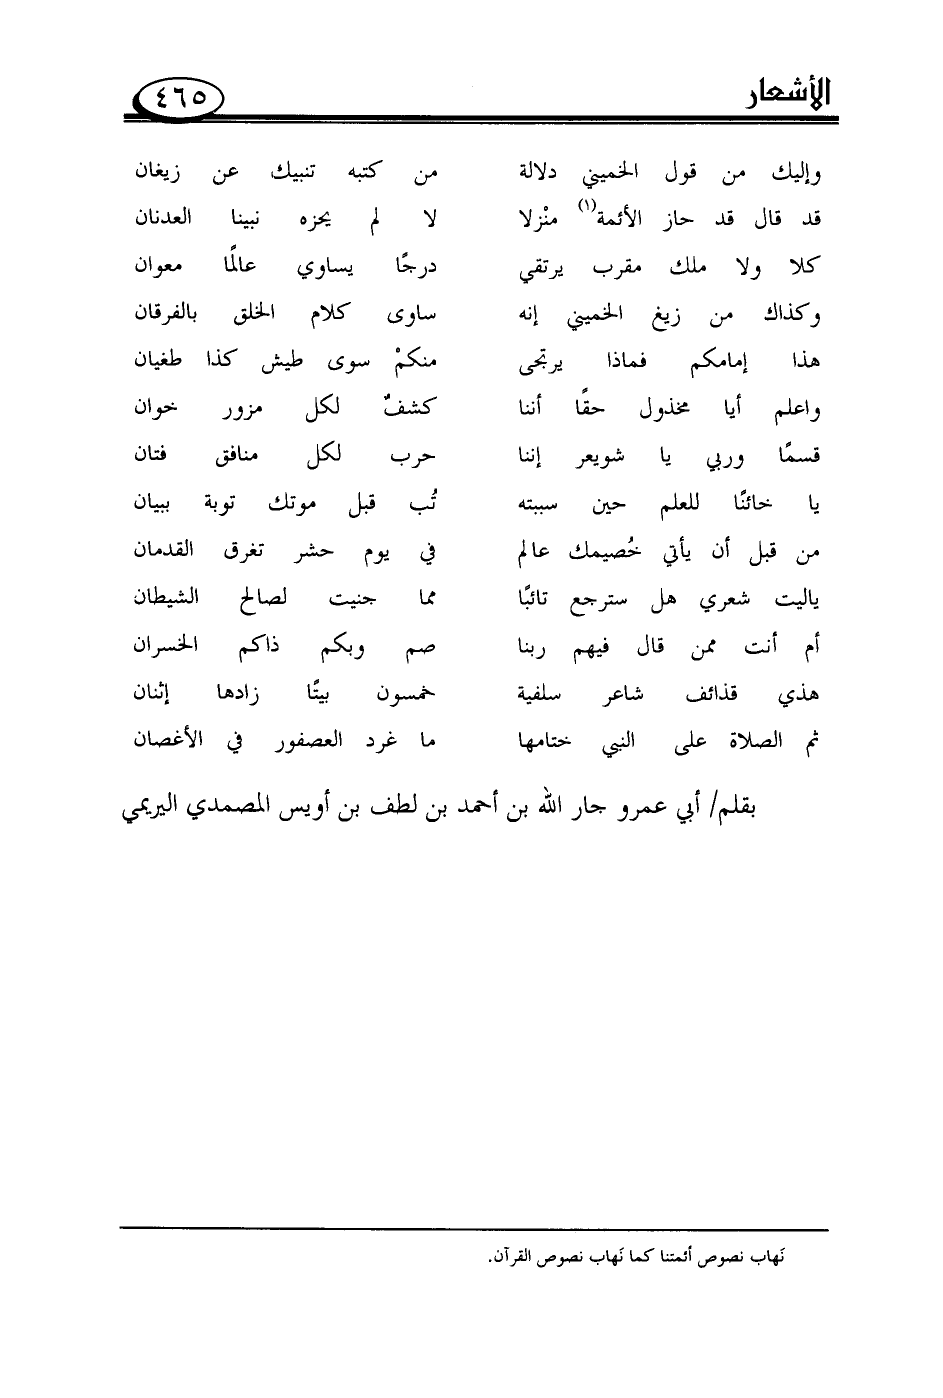 الأشعار ٤٦٥
وإليك من قول الخميني دلالة من كتبه تنبيك عن زيغان
قد قال قد حاز الأئمة(١) منْزلا لا لم يحزه نبينا العدنان
كلا ولا ملك مقرب يرتقي درجًا يساوي عالمًا معوان
وكذاك من زيغ الخميني إنه ساوى كلام الخلق بالفرقان
هذا إمامكم فماذا يرتجى منكمْ سوى طيش كذا طغيان
واعلم أيا مخذول حقًا أننا كشفٌ لكل مزور خوان
قسمًا وربي يا شويعر إننا حرب لكل منافق فتان
يا خائنًا للعلم حين سببته تُب قبل موتك توبة ببيان
من قبل أن يأتي خُصيمك عالم في يوم حشر تغرق القدمان
ياليت شعري هل سترجع تائبًا مما جنيت لصالح الشيطان
أم أنت ممن قال فيهم ربنا صم وبكم ذاكم الخسران
هذي قذائف شاعر سلفية خمسون بيتًا زادها إثنان
ثم الصلاة على النبي ختامها ما غرد العصفور في الأغصان
بقلم/ أبي عمرو جار الله بن أحمد بن لطف بن أويس المصمدي اليريمي
نَهاب نصوص أئمتنا كما نَهاب نصوص القرآن.